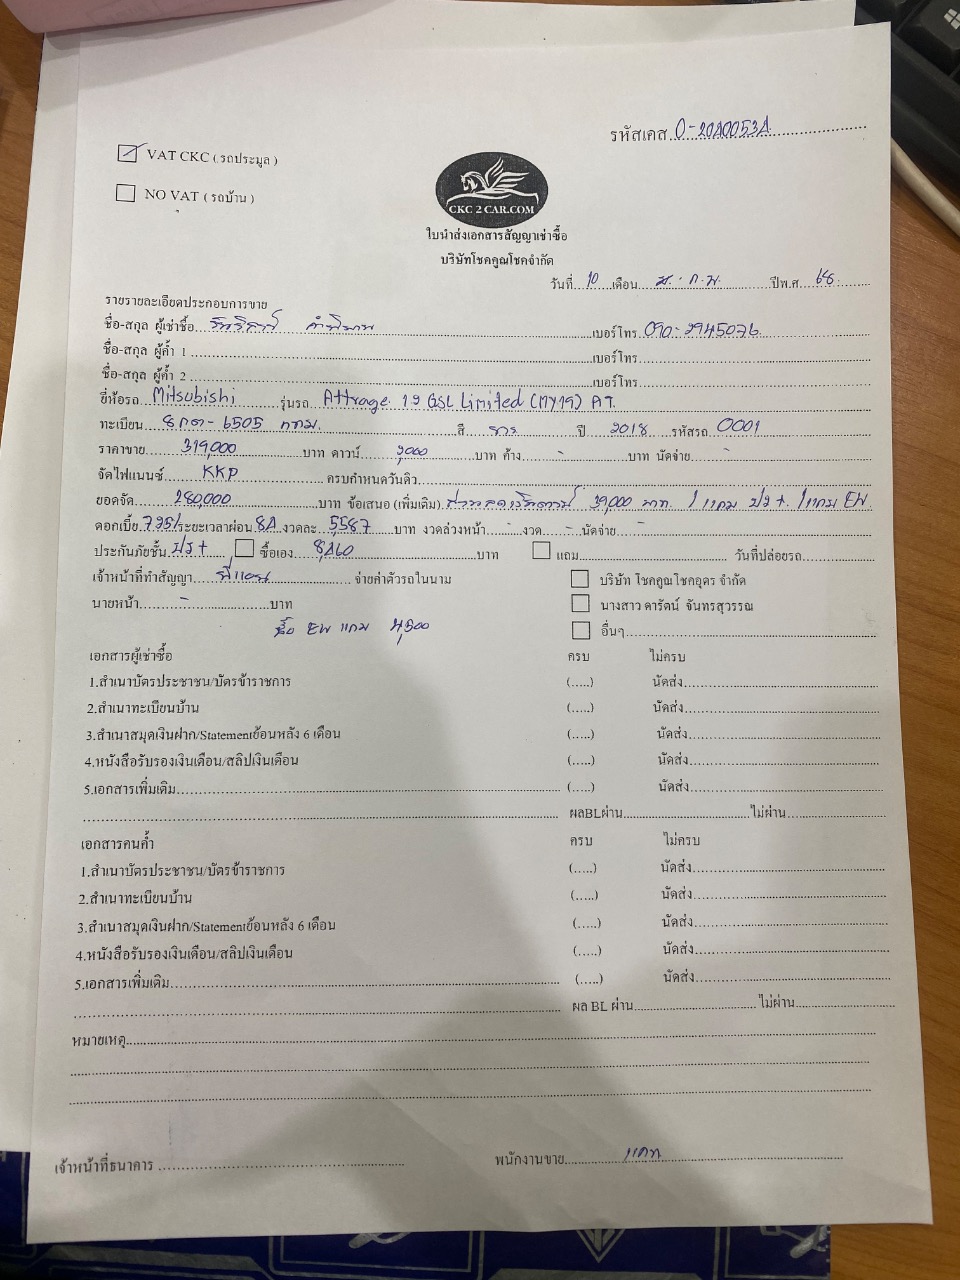 รหัสเคส O-20A0053A
VAT CKC ( รถประมูล )
NO VAT ( รถบ้าน )
CKC 2 CAR.COM
ใบนำส่งเอกสารสัญญาเช่าซื้อ
บริษัทโชคคูณโชคจำกัด
วันที่ 10 เดือน ม.ค. ปีพ.ศ. 68
รายรายละเอียดประกอบการขาย
ชื่อ-สกุล ผู้เช่าซื้อ เบอร์โทร 090-2945076
ชื่อ-สกุล ผู้ค้ำ 1 เบอร์โทร
ชื่อ-สกุล ผู้ค้ำ 2 เบอร์โทร
ยี่ห้อรถ Mitsubishi รุ่นรถ Attrage 1.2 GSL Limited (MY19) AT.
ทะเบียน 8กต-6505 กทม. สี ขาว ปี 2018 รหัสรถ 0001
ราคาขาย 319,000 บาท ดาวน์ 2,000 บาท ค้าง - บาท นัดจ่าย -
จัดไฟแนนซ์ KKP ครบกำหนดวันดิว
ยอดจัด 280,000 บาท ข้อเสนอ (เพิ่มเติม) 39,000 บาท / แถม ป2+ / แถม EW
ดอกเบี้ย 7.25/ ระยะเวลาผ่อน 84 งวดละ 5,587 บาท งวดล่วงหน้า - งวด - นัดจ่าย -
ประกันภัยชั้น ป2+ ซื้อเอง 8,260 บาท แถม วันที่ปล่อยรถ
เจ้าหน้าที่ทำสัญญา จ่ายค่าตัวรถในนาม
บริษัท โชคคูณโชคอุดร จำกัด
นายหน้า - บาท
นางสาว ดารัตน์ จันทรสุวรรณ
ซื้อ EW แถม 4,500
อื่นๆ
เอกสารผู้เช่าซื้อ ครบ ไม่ครบ
1.สำเนาบัตรประชาชน/บัตรข้าราชการ (.....) นัดส่ง
2.สำเนาทะเบียนบ้าน (.....) นัดส่ง
3.สำเนาสมุดเงินฝาก/Statementย้อนหลัง 6 เดือน (.....) นัดส่ง
4.หนังสือรับรองเงินเดือน/สลิปเงินเดือน (.....) นัดส่ง
5.เอกสารเพิ่มเติม (.....) นัดส่ง
ผลBLผ่าน ไม่ผ่าน
เอกสารคนค้ำ ครบ ไม่ครบ
1.สำเนาบัตรประชาชน/บัตรข้าราชการ (.....) นัดส่ง
2.สำเนาทะเบียนบ้าน (.....) นัดส่ง
3.สำเนาสมุดเงินฝาก/Statementย้อนหลัง 6 เดือน (.....) นัดส่ง
4.หนังสือรับรองเงินเดือน/สลิปเงินเดือน (.....) นัดส่ง
5.เอกสารเพิ่มเติม (.....) นัดส่ง
ผล BL ผ่าน ไม่ผ่าน
หมายเหตุ
เจ้าหน้าที่ธนาคาร พนักงานขาย